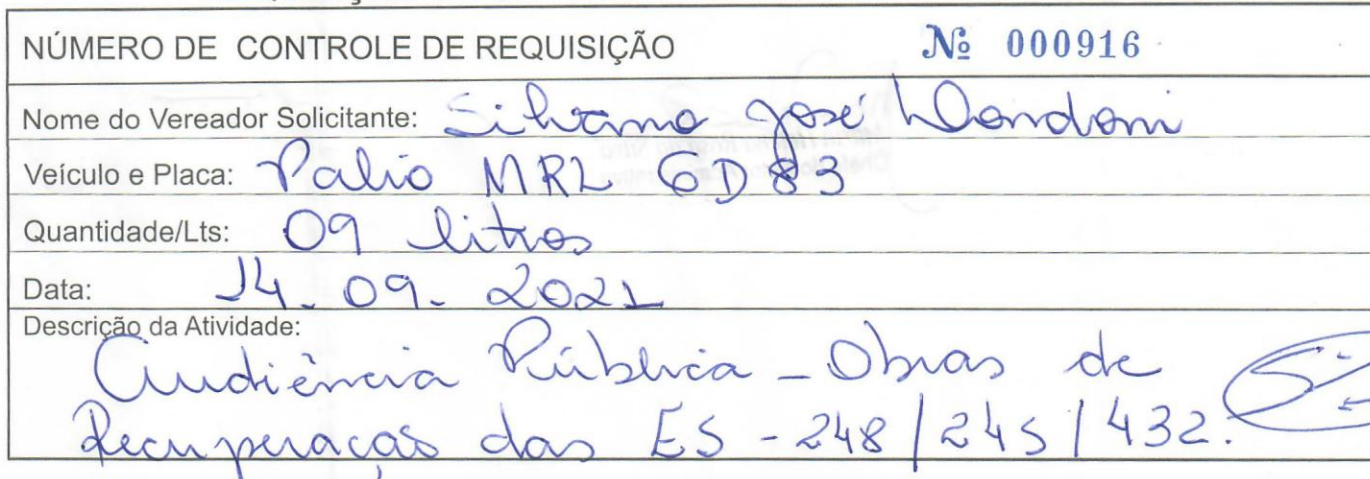 NÚMERO DE CONTROLE DE REQUISIÇÃO Nº 000916
Nome do Vereador Solicitante: Silvano José Dondoni
Veículo e Placa: Palio MRL 6D83
Quantidade/Lts: 09 litros
Data: 14.09.2021
Descrição da Atividade:
Audiência Pública - Obras de
Recuperação das ES - 248/245/432.